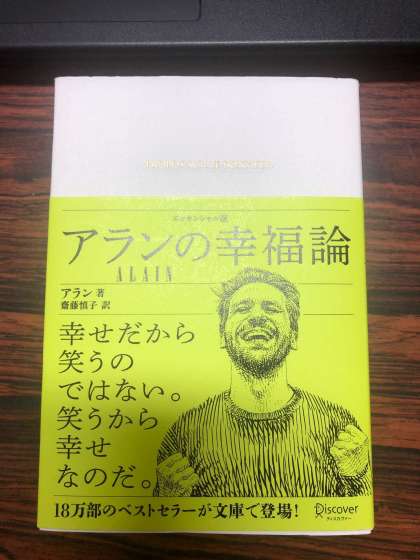 エッセンシャル版
アランの幸福論
ALAIN
アラン 著
齋藤慎子 訳
幸せだから
笑うの
ではない。
笑うから
幸せ
なのだ。
18万部のベストセラーが文庫で登場!
Discover
ディスカヴァー